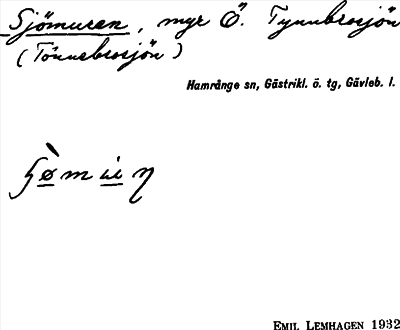 Sjömuren, myr Ö. Tynnbrosjön
(Tönnebrosjön)
Hamrånge sn, Gästrikl. ö. tg, Gävleb. l.
EMIL LEMHAGEN 1932